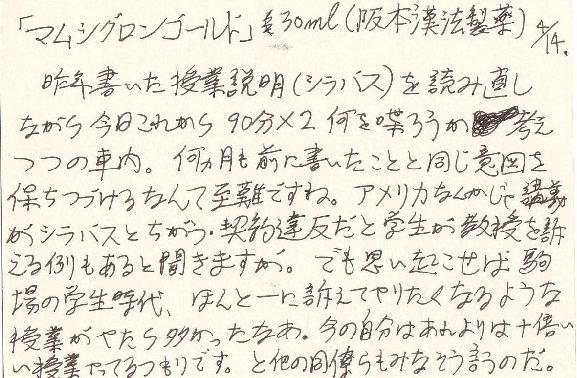 「マムシグロンゴールド」30ml(阪本漢法製薬) 4/14.
昨年書いた授業説明(シラバス)を読み直し
ながら今日これから90分×2何を喋ろうか考え
つつの車内。何ヵ月も前に書いたことと同じ意図を
保ちつづけるなんて至難ですね。アメリカなんかじゃ講義
がシラバスとちがう・契約違反だと学生が教授を訴
える例もあると聞きますが。でも思い起こせば駒
場の学生時代、ほんとーに訴えてやりたくなるような
授業がやたら多かったなあ。今の自分はあれよりは十倍い
い授業やってるつもりです。と他の同僚らもみなそう言うのだ。